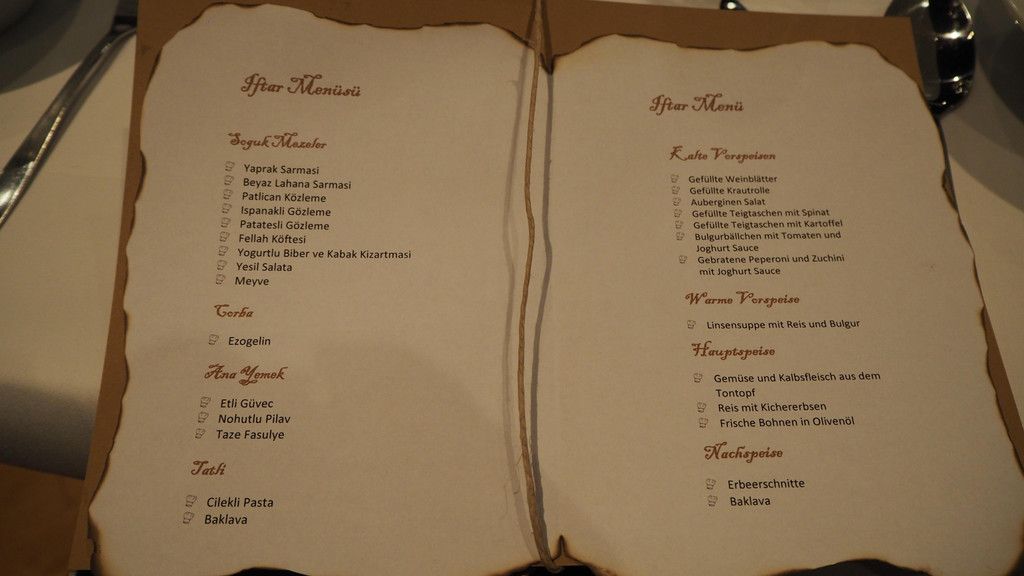 Iftar Menüsü
Soguk Mezeler
Yaprak Sarmasi
Beyaz Lahana Sarmasi
Patlican Közleme
Ispanakli Gözleme
Patatesli Gözleme
Fellah Köftesi
Yogurtlu Biber ve Kabak Kizartmasi
Yesil Salata
Meyve
Corba
Ezogelin
Ana Yemek
Etli Güvec
Nohutlu Pilav
Taze Fasulye
Tatli
Cilekli Pasta
Baklava
Iftar Menü
Kalte Vorspeisen
Gefüllte Weinblätter
Gefüllte Krautrolle
Auberginen Salat
Gefüllte Teigtaschen mit Spinat
Gefüllte Teigtaschen mit Kartoffel
Bulgurbällchen mit Tomaten und
Joghurt Sauce
Gebratene Peperoni und Zuchini
mit Joghurt Sauce
Warme Vorspeise
Linsensuppe mit Reis und Bulgur
Hauptspeise
Gemüse und Kalbsfleisch aus dem
Tontopf
Reis mit Kichererbsen
Frische Bohnen in Olivenöl
Nachspeise
Erbeerschnitte
Baklava